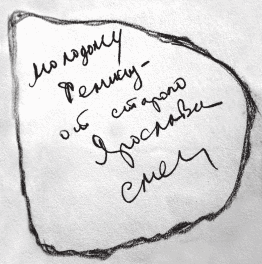 молодому
Феликсу -
от старого
Ярослава
Смел